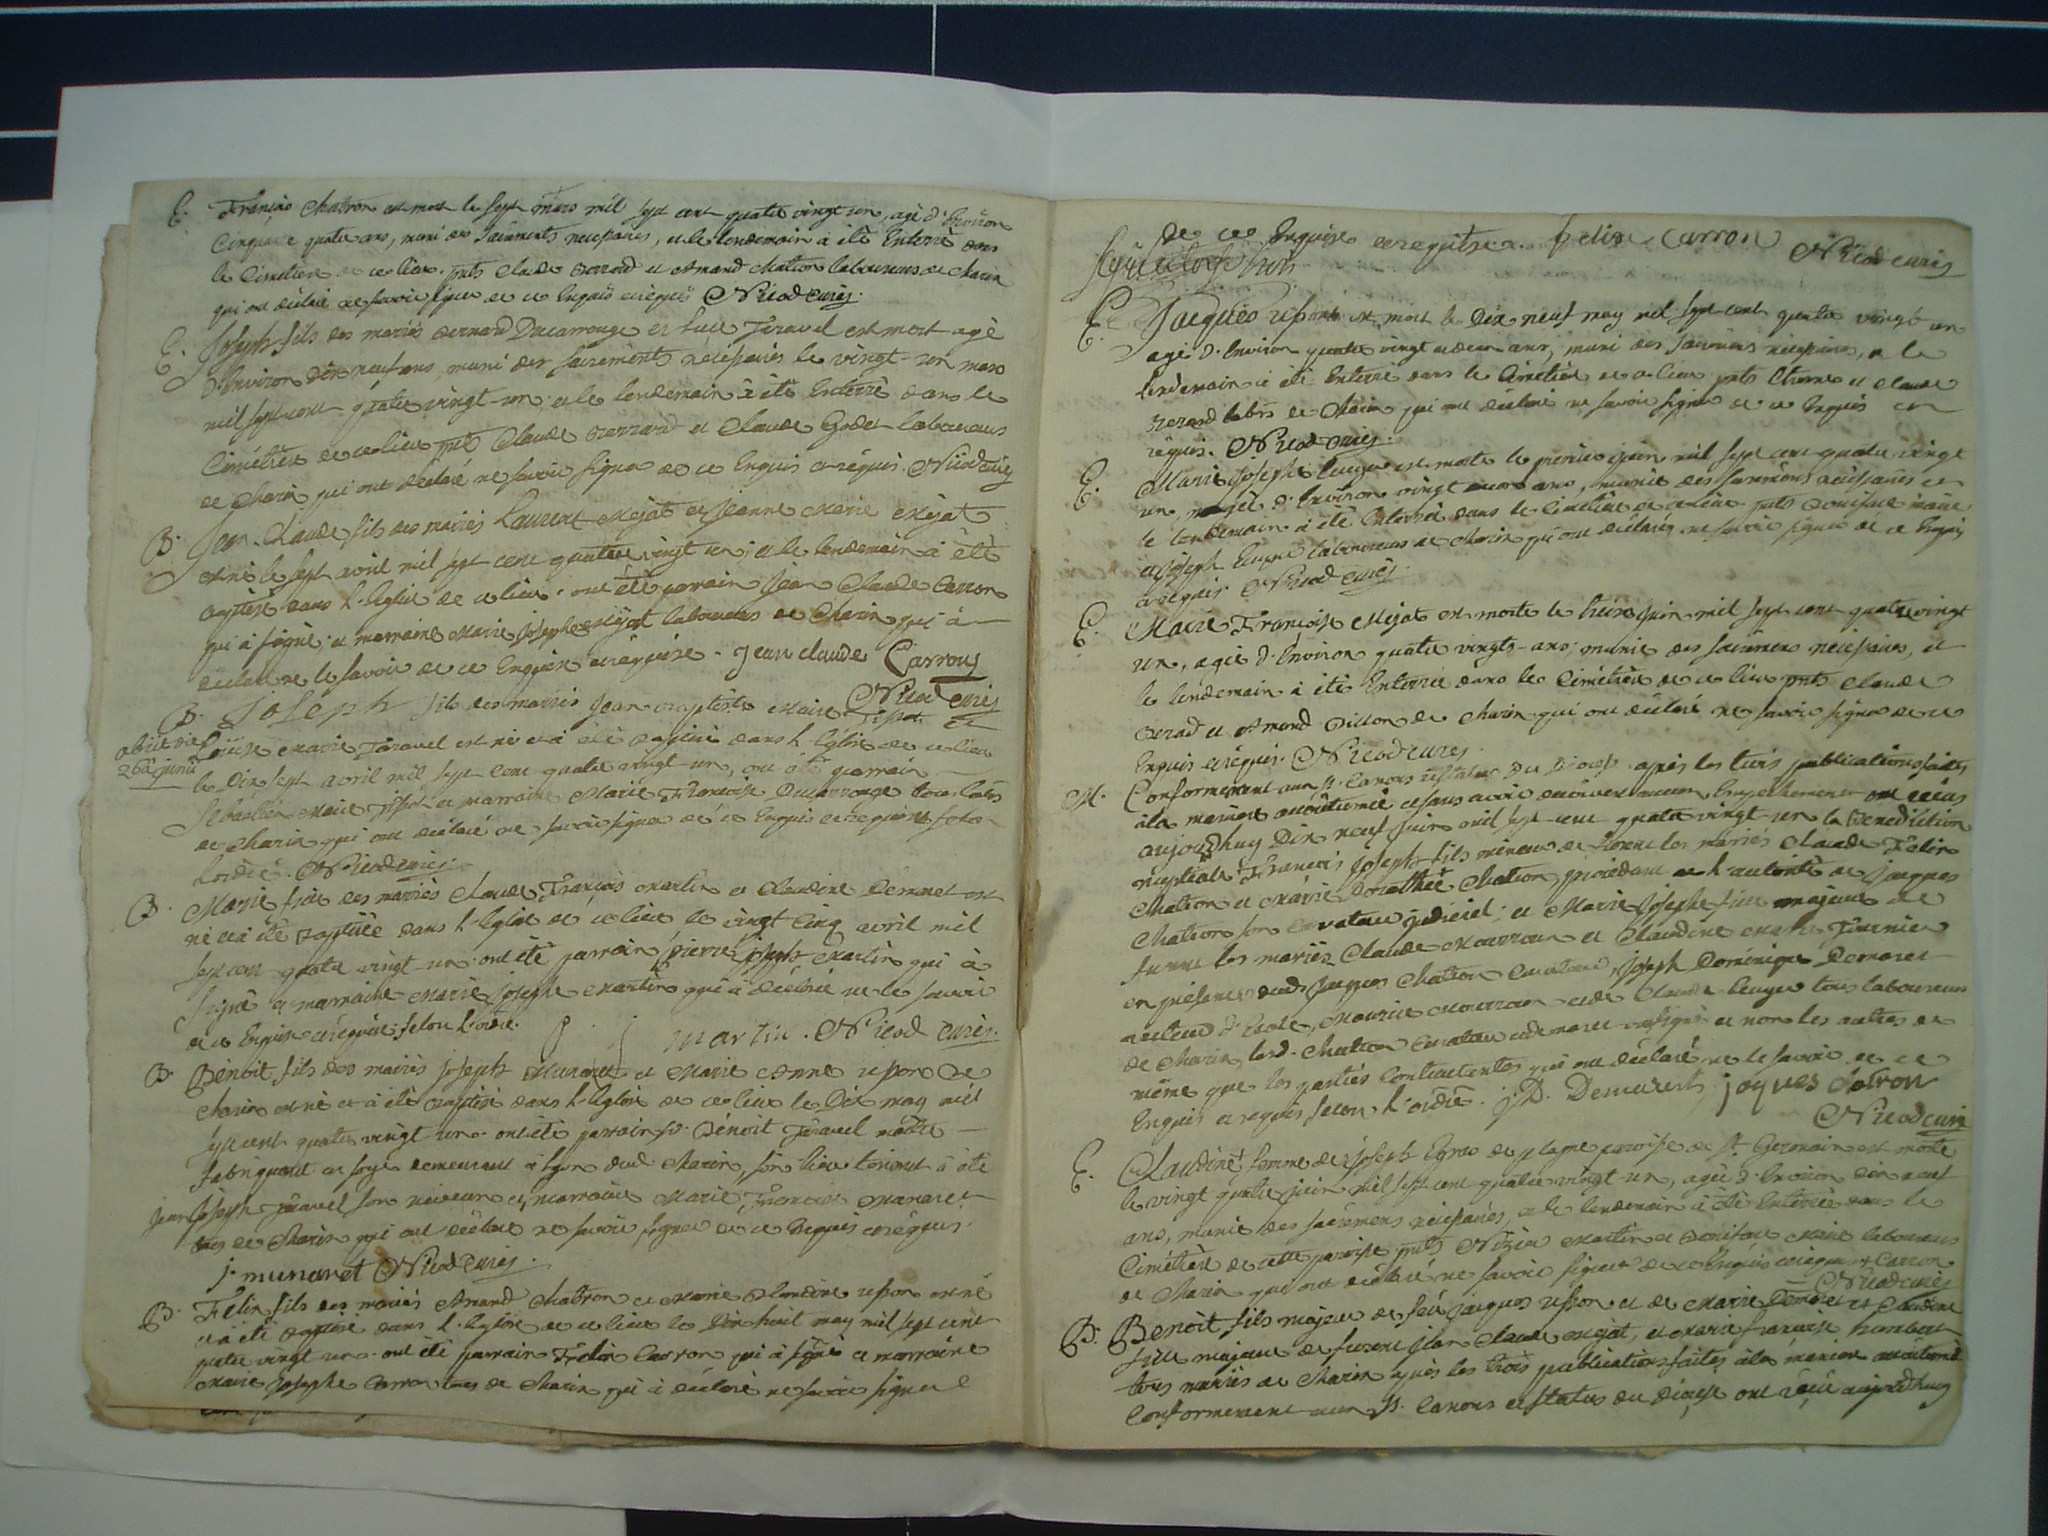 E. François Chatron est mort le sept mars mil sept cent quatre vingt un, agé d'Environ
Cinquante quatre ans, muni des sacrements necessaires, et le lendemain à été Enterré dans
le Cimetiere de ce lieu. pnts Claude et Amand Chatron laboureurs de Charix
qui ont déclaré ne savoir signer de ce Enquis et requis Nicod curés.
E. Joseph fils des mariés Bernard Ducarrouge et Luce Jiravel est mort agé
d'Environ dix neuf ans, muni des sacrements necessaires le vingt-un mars
mil sept cent quatre vingt-un, et le lendemain à été Enterré dans le
Cimétiere de ce lieu pnts Claude et Claude Godet laboureurs
de Charix qui ont déclaré ne savoir signer de ce Enquis et requis. Nicod curés
B. Jean-Claude fils des mariés Laurent Mejat et Jeanne Marie Mejat
est né le sept avril mil sept cent quatre vingt un, et le lendemain à été
Baptisé dans l'Eglise de ce lieu. ont été parrain Jean Claude Carron
qui à signé, et marraine Marie Josephe Mejat laboureurs de Charix qui à
déclaré ne le savoir de ce Enquise et requise. Jean claude Carron
Nicod curés
B. Joseph fils des mariés Jean Baptiste Maire Tissot et
obiit die
26â junii
Louise Marie Jiravel est né et à été Baptisé dans l'Eglise de ce lieu
le Dix sept avril mil sept cent quatre vingt-un, ont été parrain
Sébastien Maire Tissot et marraine Marie Françoise Ducarrouge tous labrs
de Charix qui ont déclaré ne savoir signer de ce Enquis et requis selon
l'ordre. Nicod curés.
B. Marie fille des mariés Claude François Martin et Claudine Démaret est
né et à été Baptisée dans l'Eglise de ce lieu le vingt Cinq avril mil
sept cent quatre vingt-un. ont été parrain Pierre joseph Martin qui à
signé et marraine Marie Josephe Martin qui à déclaré ne le savoir
de ce Enquise et requise selon l'ordre. P. j martin. Nicod curés.
B. Bénoit fils des mariés Joseph Munaret et Marie Anne reffon de
Charix est né et à été Baptisé dans l'Eglise de ce lieu le Dix may mil
sept cent quatre vingt-un. ont été parrain sr. Bénoit Jiravel maître
fabriquant en soye demeurant à Lyon dud Charix, son lieu tenant à été
Jean Joseph Jiravel son neveu et marraine Marie Françoise Manaret
tous de Charix qui ont déclaré ne savoir signer de ce Enquis et requis.
j. munaret Nicod curés.
B. Félix fils des mariés Amand Chatron et Marie Claudine reffon est né
et à été Baptisé dans l'Eglise de ce lieu le Dix huit may mil sept cent
quatre vingt un. ont été parrain Félix Carron qui à signé et marraine
Marie Josephe Carron tous de Charix qui à déclaré ne savoir signer
de ce Enquise et requise. felix Carron Nicod curés
E. Jacques reffon est mort le Dix neuf may mil sept cent quatre vingt un
agé d'Environ quatre vingt et deux ans, muni des sacremens necessaires, et le
lendemain à été Enterré dans le Cimetiere de ce lieu pnts et Claude
labrs de Charix qui ont déclaré ne savoir signer de ce Enquis et
requis. Nicod curés.
E. Marie Josephe est morte le premier juin mil sept cent quatre vingt
un, agée d'Environ vingt ans, munie des sacremens necessaires et
le lendemain à été Enterrée dans le Cimetiere de ce lieu pnts Donisius maire
et Joseph laboureurs de Charix qui ont déclaré ne savoir signer de ce Enquis
et requis. Nicod curés.
E. Marie Françoise Mejat est morte le treize juin mil sept cent quatre vingt
un, agée d'Environ quatre vingts-ans, munie des sacremens necessaires, et
le lendemain à été Enterrée dans le Cimétiere de ce lieu pnts Claude
et Amand de Charix qui ont déclaré ne savoir signer de ce
Enquis et requis. Nicod curés.
M. Conformement aux st. Canons et statuts du Diocese après les trois publications faites
à la maniere accoutumée et sans avoir découvert aucun Empechement ont reçus
aujourdhuy Dix neuf juin mil sept cent quatre vingt-un la Benediction
nuptiale François Joseph fils mineur de furent les mariés Claude Félix
Chatron et Marie Dorothée Chatron, procedant de l'autorité de jacques
Chatron son Curateur judiciel; et Marie Josephe fille majeure de
furent les mariés Claude Mourron et Claudine Marie Fournier
en présence dud Jacques Chatron Curateur, Joseph Dominique Demaret
recteur d'Ecole, Maurice Mourron et de Claude tous laboureurs
de Charix, led. Chatron Curateur et demaret ont signés et non les autres de
même que les parties Contractantes qui ont déclaré ne le savoir de ce
Enquis et requis selon l'ordre. j.D. Demarest jaques Satron
Nicod curés
E. Claudine femme de Joseph de plagne paroisse de St. Germain est morte
le vingt quatre juin mil sept cent quatre vingt-un, agée d'Environ dix neuf
ans, munie des sacremens necessaires, et le lendemain à été Enterrée dans le
Cimétiere de cette paroisse pnts Nizier Martin et Donisius Maire laboureurs
de Charix qui ont déclaré ne savoir signer de ce Enquis et requis
Nicod curés
B. Benoit fils majeur de feu jacques reffon et de Marie Demaret et Claudine
fille majeure de furent jean Claude Mejat, et Marie françoise humbert
tous mariés de Charix après les trois publications faites à la maniere accoutumée
Conformement aux st. Canons et statuts du Diocese ont reçu aujourdhuy